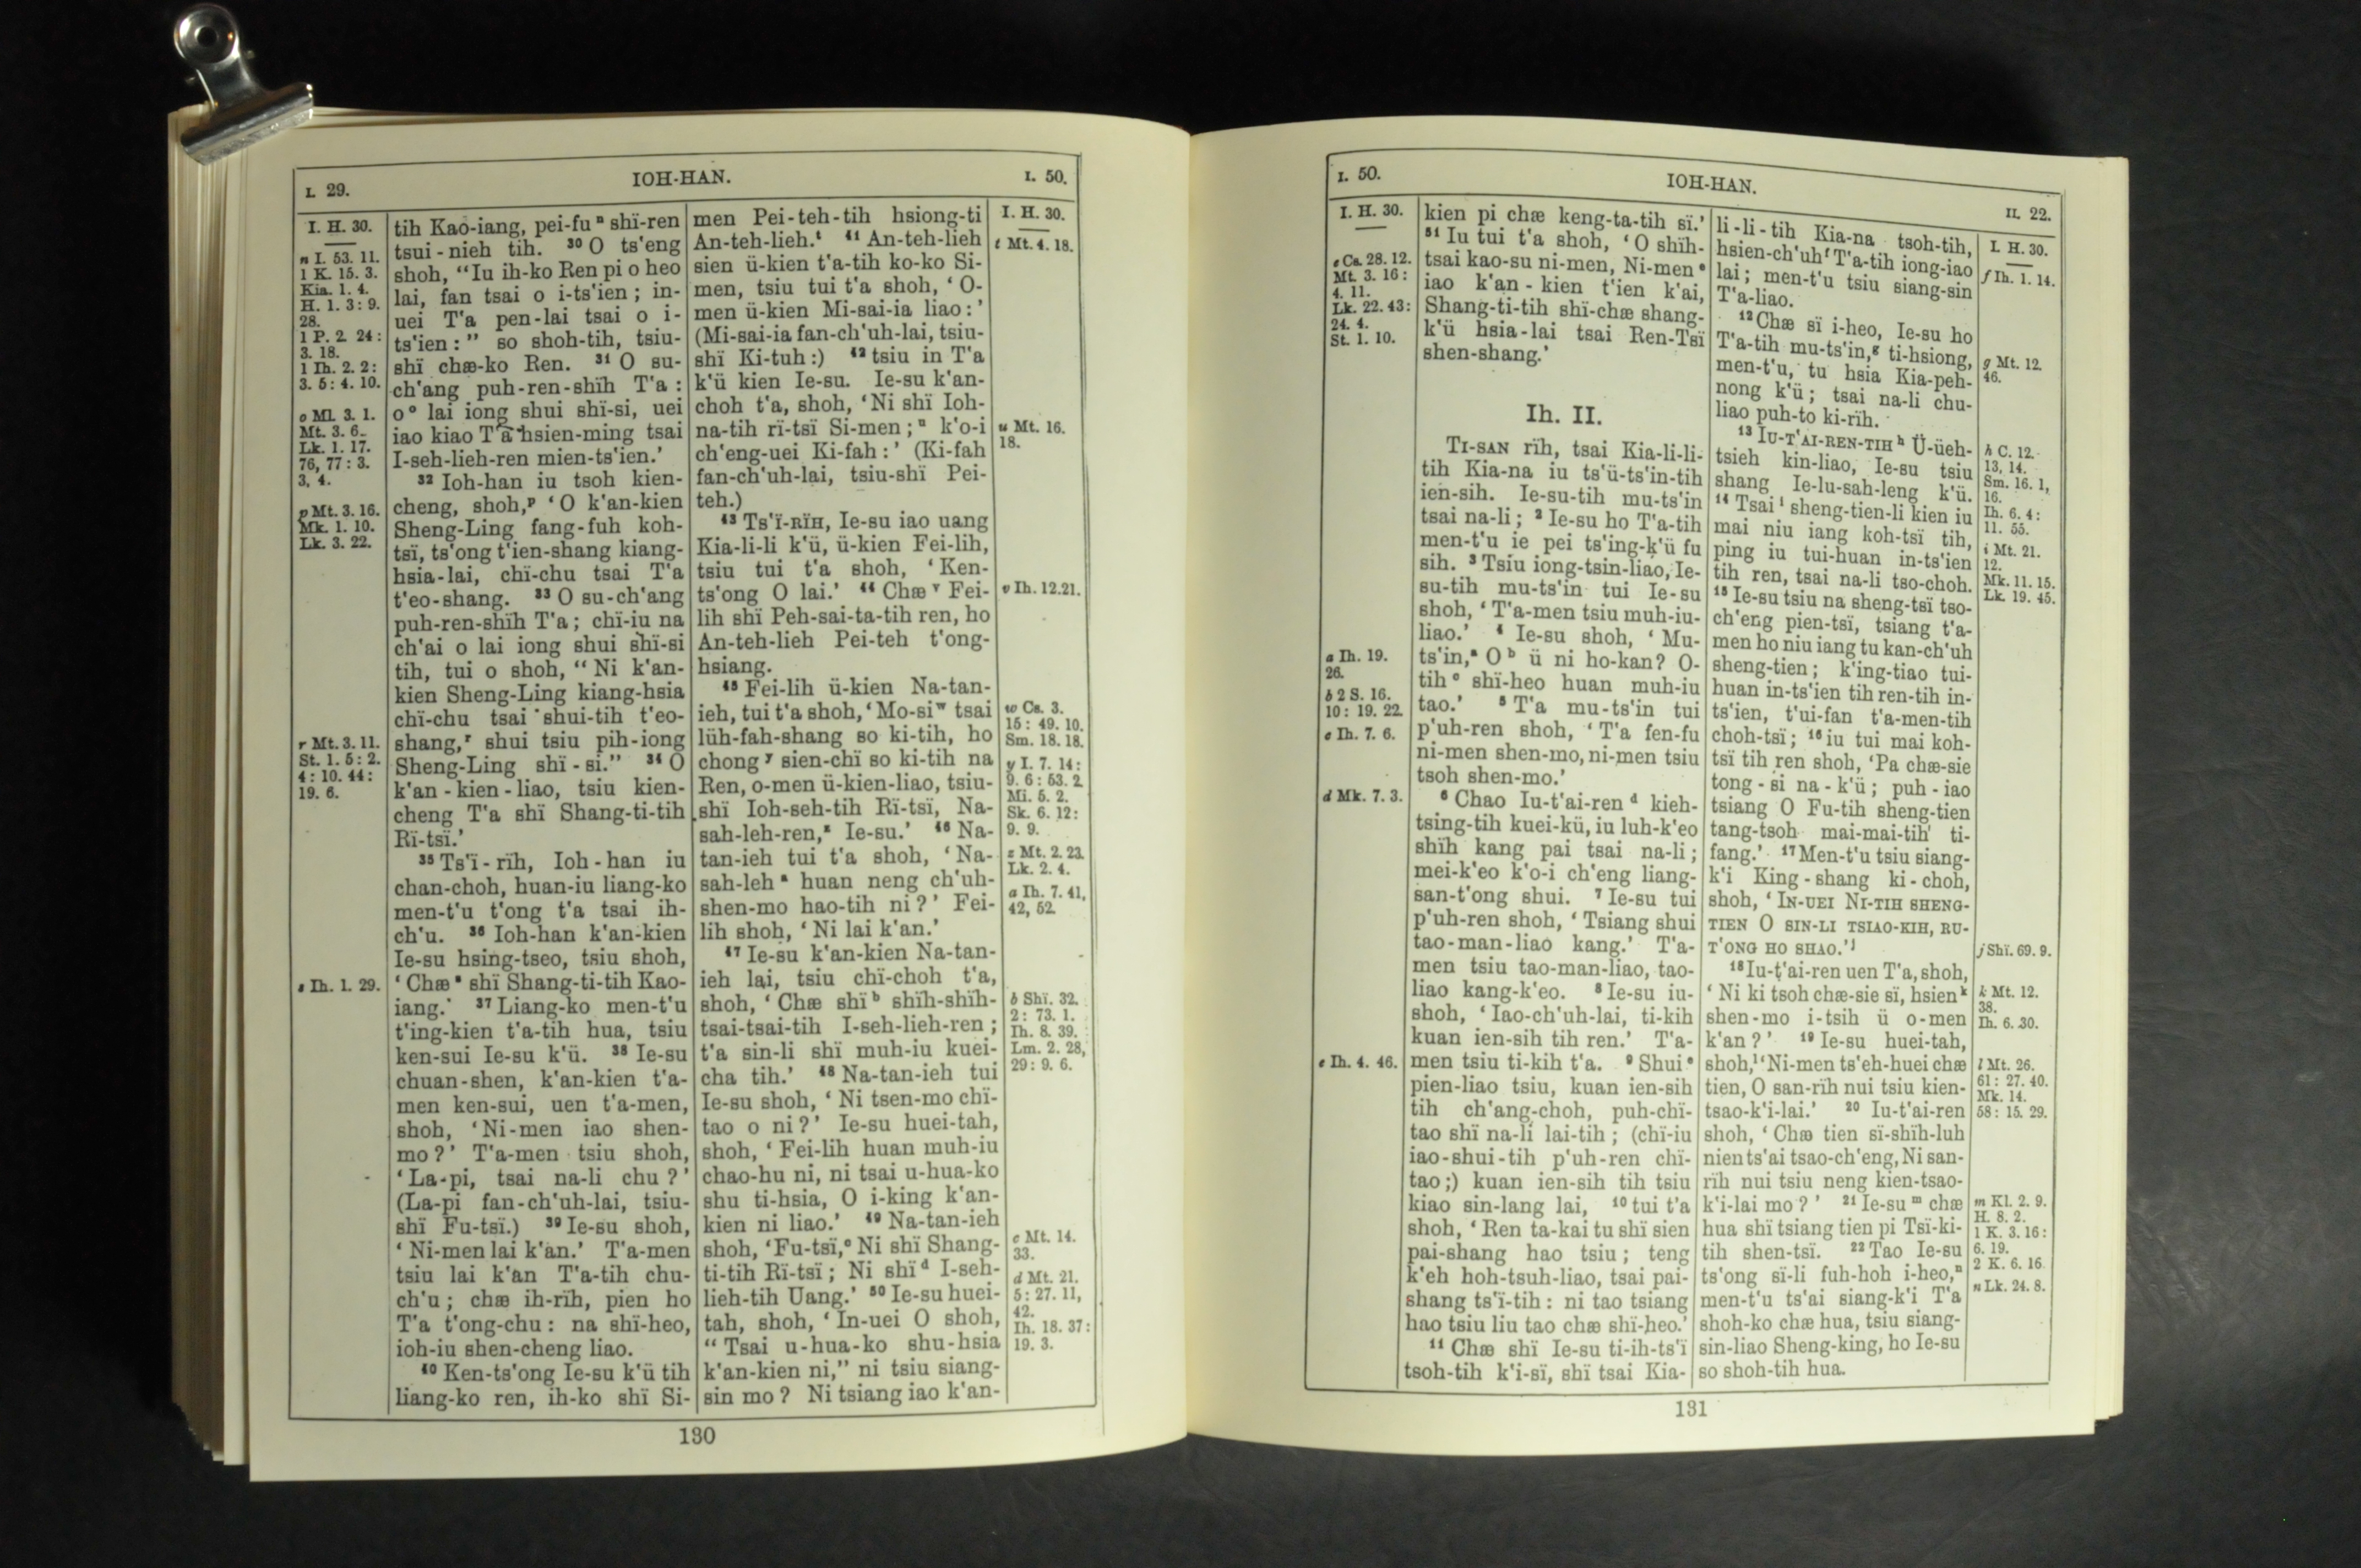 I. 29.
IOH-HAN.
I. 50.
I. H. 30.
n I. 53. 11.
1 K. 15. 3.
Kia. 1. 4.
H. 1. 3 : 9.
28.
1 P. 2. 24 :
3. 18.
1 Ih. 2. 2 :
3. 5 : 4. 10.
o Ml. 3. 1.
Mt. 3. 6.
Lk. 1. 17.
76, 77 : 3.
3, 4.
p Mt. 3. 16.
Mk. 1. 10.
Lk. 3. 22.
r Mt. 3. 11.
St. 1. 5 : 2.
4 : 10. 44 :
19. 6.
s Ih. 1. 29.
tih Kao-iang, pei-fu ⁿ shï-ren
tsui-nieh tih. ³⁰ O ts'eng
shoh, “Iu ih-ko Ren pi o heo
lai, fan tsai o i-ts'ien ; in-
uei T'a pen-lai tsai o i-
ts'ien :” so shoh-tih, tsiu-
shï chæ-ko Ren. ³¹ O su-
ch'ang puh-ren-shïh T'a :
o ᵒ lai iong shui shï-si, uei
iao kiao T'a hsien-ming tsai
I-seh-lieh-ren mien-ts'ien.’
³² Ioh-han iu tsoh kien-
cheng, shoh,ᵖ ‘O k'an-kien
Sheng-Ling fang-fuh koh-
tsï, ts'ong t'ien-shang kiang-
hsia-lai, chï-chu tsai T'a
t'eo-shang. ³³ O su-ch'ang
puh-ren-shïh T'a ; chï-iu na
ch'ai o lai iong shui shï-si
tih, tui o shoh, “Ni k'an-
kien Sheng-Ling kiang-hsia
chï-chu tsai shui-tih t'eo-
shang,ʳ shui tsiu pih-iong
Sheng-Ling shï-si.” ³⁴ O
k'an-kien-liao, tsiu kien-
cheng T'a shï Shang-ti-tih
Rï-tsï.’
³⁵ Ts'ï-rïh, Ioh-han iu
chan-choh, huan-iu liang-ko
men-t'u t'ong t'a tsai ih-
ch'u. ³⁶ Ioh-han k'an-kien
Ie-su hsing-tseo, tsiu shoh,
‘Chæ ˢ shï Shang-ti-tih Kao-
iang.’ ³⁷ Liang-ko men-t'u
t'ing-kien t'a-tih hua, tsiu
ken-sui Ie-su k'ü. ³⁸ Ie-su
chuan-shen, k'an-kien t'a-
men ken-sui, uen t'a-men,
shoh, ‘Ni-men iao shen-
mo ?’ T'a-men tsiu shoh,
‘La-pi, tsai na-li chu ?’
(La-pi fan-ch'uh-lai, tsiu-
shï Fu-tsï.) ³⁹ Ie-su shoh,
‘Ni-men lai k'an.’ T'a-men
tsiu lai k'an T'a-tih chu-
ch'u ; chæ ih-rïh, pien ho
T'a t'ong-chu : na shï-heo,
ioh-iu shen-cheng liao.
⁴⁰ Ken-ts'ong Ie-su k'ü tih
liang-ko ren, ih-ko shï Si-
men Pei-teh-tih hsiong-ti
An-teh-lieh.ᵗ ⁴¹ An-teh-lieh
sien ü-kien t'a-tih ko-ko Si-
men, tsiu tui t'a shoh, ‘O-
men ü-kien Mi-sai-ia liao :’
(Mi-sai-ia fan-ch'uh-lai, tsiu-
shï Ki-tuh :) ⁴² tsiu in T'a
k'ü kien Ie-su. Ie-su k'an-
choh t'a, shoh, ‘Ni shï Ioh-
na-tih rï-tsï Si-men ;ᵘ k'o-i
ch'eng-uei Ki-fah :’ (Ki-fah
fan-ch'uh-lai, tsiu-shï Pei-
teh.)
⁴³ Ts'ï-RÏH, Ie-su iao uang
Kia-li-li k'ü, ü-kien Fei-lih,
tsiu tui t'a shoh, ‘Ken-
ts'ong O lai.’ ⁴⁴ Chæ ᵛ Fei-
lih shï Peh-sai-ta-tih ren, ho
An-teh-lieh Pei-teh t'ong-
hsiang.
⁴⁵ Fei-lih ü-kien Na-tan-
ieh, tui t'a shoh, ‘Mo-si ʷ tsai
lüh-fah-shang so ki-tih, ho
chong ʸ sien-chï so ki-tih na
Ren, o-men ü-kien-liao, tsiu-
shï Ioh-seh-tih Rï-tsï, Na-
sah-leh-ren,ᶻ Ie-su.’ ⁴⁶ Na-
tan-ieh tui t'a shoh, ‘Na-
sah-leh ᵃ huan neng ch'uh-
shen-mo hao-tih ni ?’ Fei-
lih shoh, ‘Ni lai k'an.’
⁴⁷ Ie-su k'an-kien Na-tan-
ieh lai, tsiu chï-choh t'a,
shoh, ‘Chæ shï ᵇ shïh-shïh-
tsai-tsai-tih I-seh-lieh-ren ;
t'a sin-li shï muh-iu kuei-
cha tih.’ ⁴⁸ Na-tan-ieh tui
Ie-su shoh, ‘Ni tsen-mo chï-
tao o ni ?’ Ie-su huei-tah,
shoh, ‘Fei-lih huan muh-iu
chao-hu ni, ni tsai u-hua-ko
shu ti-hsia, O i-king k'an-
kien ni liao.’ ⁴⁹ Na-tan-ieh
shoh, ‘Fu-tsï,ᶜ Ni shï Shang-
ti-tih Rï-tsï ; Ni shï ᵈ I-seh-
lieh-tih Uang.’ ⁵⁰ Ie-su huei-
tah, shoh, ‘In-uei O shoh,
“Tsai u-hua-ko shu-hsia
k'an-kien ni,” ni tsiu siang-
sin mo ? Ni tsiang iao k'an-
I. H. 30.
t Mt. 4. 18.
u Mt. 16.
18.
v Ih. 12.21.
w Cs. 3.
15 : 49. 10.
Sm. 18. 18.
y I. 7. 14 :
9. 6 : 53. 2.
Mi. 5. 2.
Sk. 6. 12 :
9. 9.
z Mt. 2. 23.
Lk. 2. 4.
a Ih. 7. 41,
42, 52.
b Shï. 32.
2 : 73. 1.
Ih. 8. 39.
Lm. 2. 28,
29 : 9. 6.
c Mt. 14.
33.
d Mt. 21.
5 : 27. 11,
42.
Ih. 18. 37 :
19. 3.
130
I. 50.
IOH-HAN.
II. 22.
I. H. 30.
e Cs. 28. 12.
Mt. 3. 16 :
4. 11.
Lk. 22. 43 :
24. 4.
St. 1. 10.
a Ih. 19.
26.
b 2 S. 16.
10 : 19. 22.
c Ih. 7. 6.
d Mk. 7. 3.
e Ih. 4. 46.
kien pi chæ keng-ta-tih sï.’
⁵¹ Iu tui t'a shoh, ‘O shïh-
tsai kao-su ni-men, Ni-men ᵉ
iao k'an-kien t'ien k'ai,
Shang-ti-tih shï-chæ shang-
k'ü hsia-lai tsai Ren-Tsï
shen-shang.’
Ih. II.
TI-SAN rïh, tsai Kia-li-li-
tih Kia-na iu ts'ü-ts'in-tih
ien-sih. Ie-su-tih mu-ts'in
tsai na-li ; ² Ie-su ho T'a-tih
men-t'u ie pei ts'ing-k'ü fu
sih. ³ Tsiu iong-tsin-liao, Ie-
su-tih mu-ts'in tui Ie-su
shoh, ‘T'a-men tsiu muh-iu-
liao.’ ⁴ Ie-su shoh, ‘Mu-
ts'in,ᵃ O ᵇ ü ni ho-kan? O-
tih ᶜ shï-heo huan muh-iu
tao.’ ⁵ T'a mu-ts'in tui
p'uh-ren shoh, ‘T'a fen-fu
ni-men shen-mo, ni-men tsiu
tsoh shen-mo.’
⁶ Chao Iu-t'ai-ren ᵈ kieh-
tsing-tih kuei-kü, iu luh-k'eo
shïh kang pai tsai na-li ;
mei-k'eo k'o-i ch'eng liang-
san-t'ong shui. ⁷ Ie-su tui
p'uh-ren shoh, ‘Tsiang shui
tao-man-liao kang.’ T'a-
men tsiu tao-man-liao, tao-
liao kang-k'eo. ⁸ Ie-su iu-
shoh, ‘Iao-ch'uh-lai, ti-kih
kuan ien-sih tih ren.’ T'a-
men tsiu ti-kih t'a. ⁹ Shui ᵉ
pien-liao tsiu, kuan ien-sih
tih ch'ang-choh, puh-chï-
tao shï na-li lai-tih ; (chï-iu
iao-shui-tih p'uh-ren chï-
tao ;) kuan ien-sih tih tsiu
kiao sin-lang lai, ¹⁰ tui t'a
shoh, ‘Ren ta-kai tu shï sien
pai-shang hao tsiu ; teng
k'eh hoh-tsuh-liao, tsai pai-
shang ts'ï-tih : ni tao tsiang
hao tsiu liu tao chæ shï-heo.’
¹¹ Chæ shï Ie-su ti-ih-ts'ï
tsoh-tih k'i-sï, shï tsai Kia-
li-li-tih Kia-na tsoh-tih,
hsien-ch'uh ᶠ T'a-tih iong-iao
lai ; men-t'u tsiu siang-sin
T'a-liao.
¹² Chæ sï i-heo, Ie-su ho
T'a-tih mu-ts'in,ᵍ ti-hsiong,
men-t'u, tu hsia Kia-peh-
nong k'ü ; tsai na-li chu-
liao puh-to ki-rïh.
¹³ IU-T'AI-REN-TIH ʰ Ü-üeh-
tsieh kin-liao, Ie-su tsiu
shang Ie-lu-sah-leng k'ü.
¹⁴ Tsai ⁱ sheng-tien-li kien iu
mai niu iang koh-tsï tih,
ping iu tui-huan in-ts'ien
tih ren, tsai na-li tso-choh.
¹⁵ Ie-su tsiu na sheng-tsï tso-
ch'eng pien-tsï, tsiang t'a-
men ho niu iang tu kan-ch'uh
sheng-tien ; k'ing-tiao tui-
huan in-ts'ien tih ren-tih in-
ts'ien, t'ui-fan t'a-men-tih
choh-tsï ; ¹⁶ iu tui mai koh-
tsï tih ren shoh, ‘Pa chæ-sie
tong-si na-k'ü ; puh-iao
tsiang O Fu-tih sheng-tien
tang-tsoh mai-mai-tih ti-
fang.’ ¹⁷ Men-t'u tsiu siang-
k'i King-shang ki-choh,
shoh, ‘IN-UEI NI-TIH SHENG-
TIEN O SIN-LI TSIAO-KIH, RU-
T'ONG HO SHAO.’ʲ
¹⁸ Iu-t'ai-ren uen T'a, shoh,
‘Ni ki tsoh chæ-sie sï, hsien ᵏ
shen-mo i-tsih ü o-men
k'an ?’ ¹⁹ Ie-su huei-tah,
shoh,ˡ ‘Ni-men ts'eh-huei chæ
tien, O san-rïh nui tsiu kien-
tsao-k'i-lai.’ ²⁰ Iu-t'ai-ren
shoh, ‘Chæ tien sï-shïh-luh
nien ts'ai tsao-ch'eng, Ni san-
rïh nui tsiu neng kien-tsao-
k'i-lai mo ?’ ²¹ Ie-su ᵐ chæ
hua shï tsiang tien pi Tsï-ki-
tih shen-tsï. ²² Tao Ie-su
ts'ong sï-li fuh-hoh i-heo,ⁿ
men-t'u ts'ai siang-k'i T'a
shoh-ko chæ hua, tsiu siang-
sin-liao Sheng-king, ho Ie-su
so shoh-tih hua.
I. H. 30.
f Ih. 1. 14.
g Mt. 12.
46.
h C. 12.
13, 14.
Sm. 16. 1,
16.
Ih. 6. 4 :
11. 55.
i Mt. 21.
12.
Mk. 11. 15.
Lk. 19. 45.
j Shï. 69. 9.
k Mt. 12.
38.
Ih. 6. 30.
l Mt. 26.
61 : 27. 40.
Mk. 14.
58 : 15. 29.
m Kl. 2. 9.
H. 8. 2.
1 K. 3. 16 :
6. 19.
2 K. 6. 16.
n Lk. 24. 8.
131